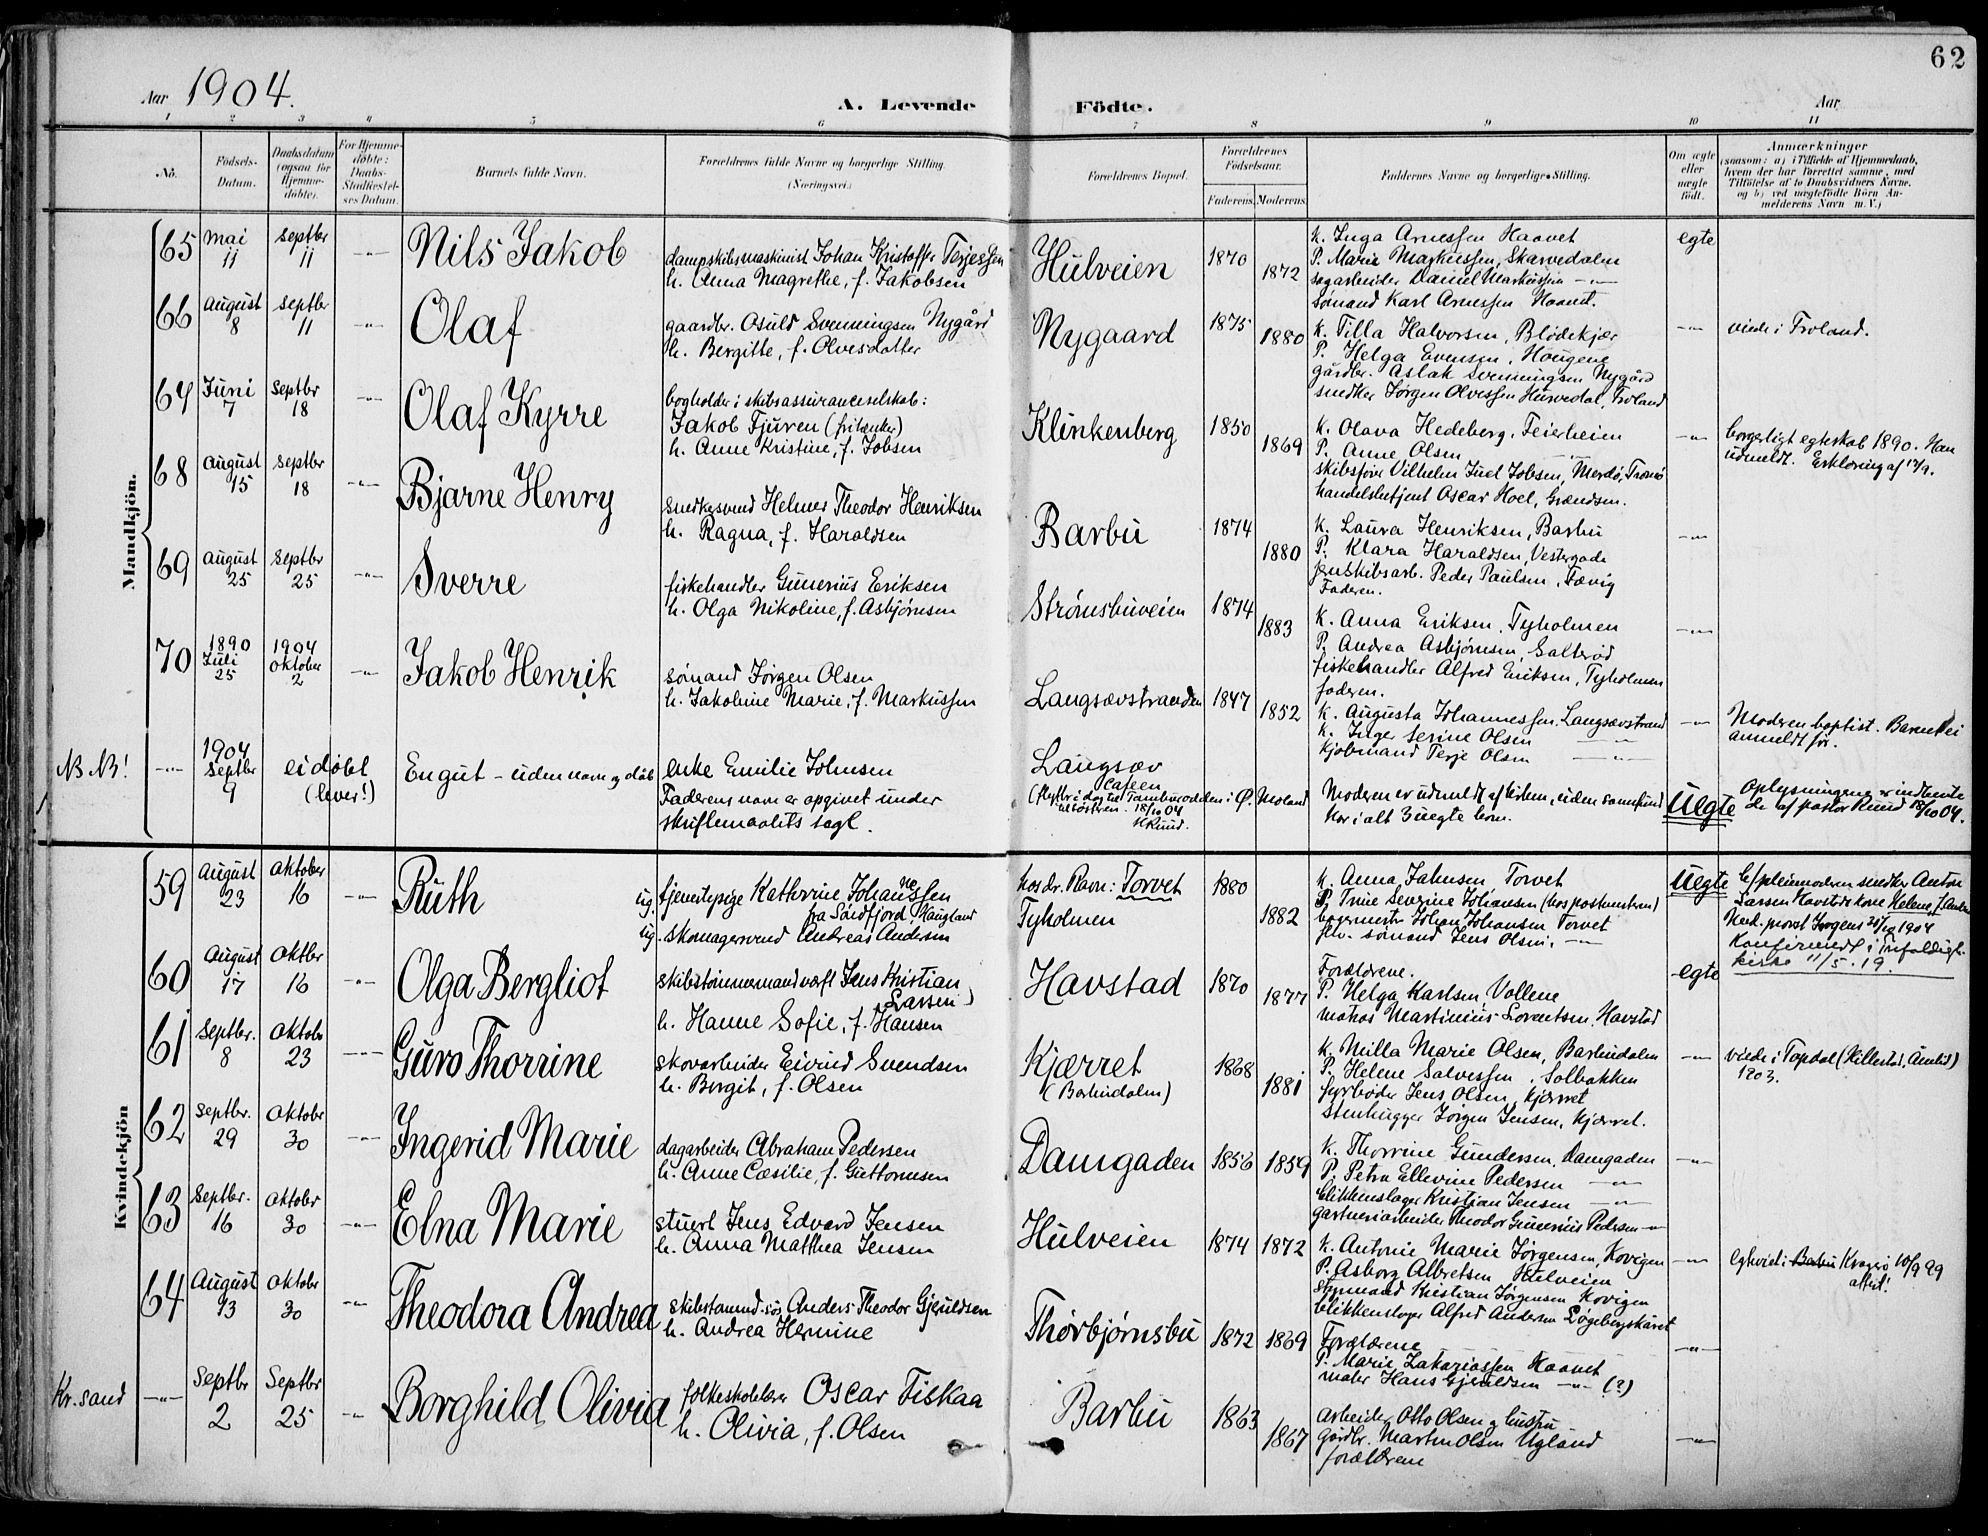 62
Aar 1904.
A. Levende Födte.
Aar
1 2 3 4 5 6 7 8 9 10 11
No.
Födsels-Datum.
Daabsdatum (ogsaa for Hjemme-döbte).
For Hjemme-döbte: Daabs-Stadfæstel-ses Datum.
Barnets fulde Navn.
Forældrenes fulde Navne og borgerlige Stilling. (Næringsvei.)
Forældrenes Bopæl.
Forældrenes Födselsaar.
Faderens. Moderens.
Faddernes Navne og borgerlige Stilling.
Om ægte eller uægte födt.
Anmærkninger
(saasom: a) i Tilfælde af Hjemmedaab, hvem der har forrettet samme, med Tilföielse af to Daabsvidners Navne, og b) ved uægtefödte Börn An-melderens Navn m. V.)
Mandkjön.
65 Mai 11 Septbr 11 -"- Nils Jakob
dampskibsmaskinist Johan Kristoffer Terjessen
h. Anna Magrethe, f. Jakobsen
Hulveien 1870 1872
K. Inga Arnessen Haavet
P. Marie Markussen, Skarvedalen
sagarbeider Daniel Markussen -"-
sømand Karl Arnessen Haavet.
egte
66 August 8 Septbr 11 -"- Olaf
gaardbr. Osuld Svenningsen Nygård
h. Bergitte, f. Olvesdatter
Nygaard 1875 1880
K. Tilla Halvorsen, Blødekjær
P. Helga Evensen, Hougene
gårdbr. Aslak Svenningsen Nygård
snedker Jørgen Olvessen Husvedal, Froland
-"- viede i Froland.
67 Juni 7 Septbr 18 -"- Olaf Kyrre
bogholder i skibsassuranceselskab:
Jakob Fjuren (fritænker)
h. Anne Kristine, f. Jobsen
Klinkenberg 1850 1869
K. Olava Hedeberg, Feierheien
P. Anne Olsen
skibsfører Vilhelm Juel Jobsen, Merdø, Tromø
handelsbetjent Oscar Hoel, Grændsen.
-"- borgerligt egteskab 1890. Han
udmeldt. Erklæring af 17/9.
68 August 15 Septbr 18 -"- Bjarne Henry
snedkersvend Helmer Theodor Henriksen
h. Ragna, f. Haraldsen
Barbu 1874 1880
K. Laura Henriksen, Barbu
P. Klara Haraldsen, Vestergade
jernskibsarb. Peder Paulsen, Fævig
Faderen.
-"-
69 August 25 Septbr 25 -"- Sverre
fiskehandler Gunerius Eriksen
h. Olga Nikoline, f. Asbjørnsen
Strømsbuveien 1874 1883
K. Anna Eriksen, Tyholmen
P. Andrea Asbjørnsen, Salterød
fiskehandler Alfred Eriksen, Tyholmen
faderen.
-"-
70 1890 Juli 25 1904 Oktober 2 -"- Jakob Henrik
sømand Jørgen Olsen
h. Jakobine Marie, f. Markussen
Langsævstranden 1847 1852
K. Augusta Johannessen, Langsævstrand
K. Inger Serine Olsen -"-
Kjøbmand Terje Olsen -"-
-"- Moderen baptist. Barnet ei
anmeldt før.
NB NB! -"- 1904 Septbr 9 ei døbt (lever!) En gut - uden navn og dåb
enke Emilie Johnsen
Faderens navn er opgivet under
skriftemaalets segl.
Langsæv
(flytter i dag til Tambur odden i Ø. Moland
18/10 04
Moderen er udmeldt af kirken, uden samfund
Har i alt 3 uegte børn.
Uegte
Oplysningerne er indhente
de af pastor Ruud 18/10 04.
Kvindekjön
59 August 23 Oktober 16 -"- Ruth
ug. tjenestepige Kathrine Johannessen
fra Søndfjord, Haugland
ug. skomagersvend Andreas Andersen
hos dr. Ravn: Torvet 1880
Tyholmen 1882
K. Anna Jahnsen Torvet
P. Trine Severine Johansen (hos postmesteren)
bagermester Johan Johansen Torvet
flv. sømand Jens Olsen, -"-
Uegte
E/ pleiemoderen snedker Anton
Larssen Havstads kone Helene, f. Anders
Konfirmeret i Trefoldigh.
kirke 11/5. 19.
60 August 17 Oktbr 16 -"- Olga Bergliot
skibstømmermand verft Jens Kristian Larsen
h. Hanne Sofie, f. Hansen
Havstad 1870 1877
Forældrene.
P. Helga Karlsen, Vollene
matros Martinius Lorentsen, Havstad
egte
61 Septbr. 8 Oktobr 23 -"- Guro Thorrine
skovarbeider Eivind Svendsen
h. Bergit, f. Olsen
Kjærret (Barbudalen) 1868 1881
K. Milla Marie Olsen, Barbudalen
P. Helene Salvessen, Solbakken
fyrbøder Jens Olsen, Kjærret
Stenhugger Jørgen Jensen, Kjærret.
-"- viede i Topdal (Hillestad, Åmlid)
1903.
62 Septbr. 29 Oktobr 30 -"- Ingerid Marie
dagarbeider Abraham Pedersen
h. Anne Cæsilie, f. Guttormsen
Damgaden 1856 1859
K. Thorrine Gundersen, Damgaden
P. Petra Ellevine Pedersen -"-
blikkenslager Kristian Jensen, -"-
gartneriarbeider Theodor Gunerius Pedersen -"-
-"-
63 Septbr. 16 Oktobr 30 -"- Elna Marie
stuert Jens Edvard Jensen
h. Anna Matthea Jensen
Hulveien 1874 1872
K. Antonie Marie Jørgensen, Kovigen
P. Asborg Albretsen Hulveien
Styrmand Kristian Jørgensen Kovigen
blikkenslager Alfred Andersen Løgebergskåret
-"- egteviet i Barbu Kragerø 10/9 99
attest!
64 August 13 Oktobr 30 -"- Theodora Andrea
skibstømmd. søs Anders Theodor Gjeruldsen
h. Andrea Hermine
Thorbjørnsbu 1872 1869
Forældrene
P. Marie Zakariassen Haavet
maler Hans Gjeruldsen -"- (?)
-"-
Kr.sand -"- Septbr 2 Septbr 25 -"- Borghild Olivia
folkeskolelærer Oscar Fiskaa
h. Olivia, f. Olsen
Barbu 1863 1867
Arbeider Otto Olsen og hustru
Gårdbr. Martin Olsen Ugland
forældrene
-"-